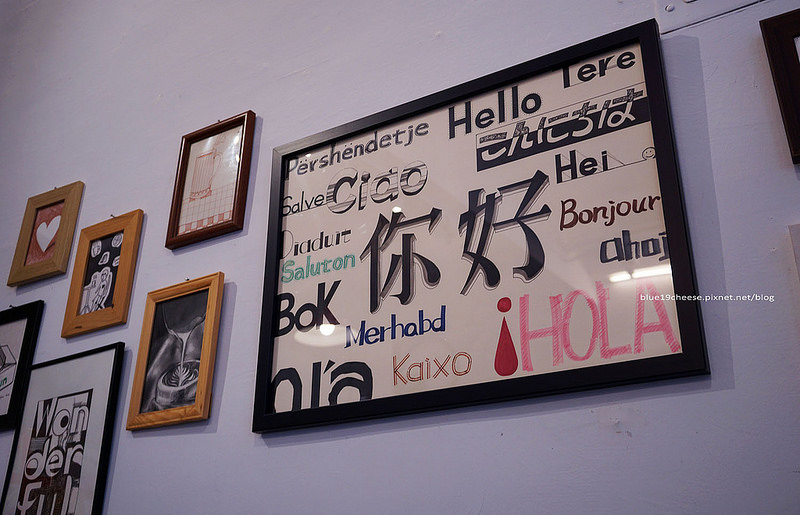 Tere
Hello
Përshëndetje
こんにちは
Hei
Salve
Ciao
Bonjour
你好
ahoj
Saluton
Bok
Merhabd
¡HOLA
Kaixo
Won
der
ful
blue19cheese.pixnet.net/blog